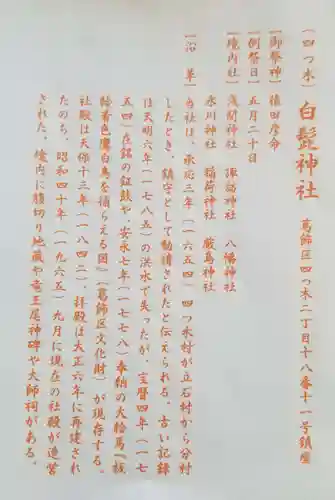 (四つ木)白髭神社 葛飾区四つ木二丁目十八番十一号鎮座
[御祭神]猿田彦命
[例祭日]五月二十日
[境内社]浅間神社 諏訪神社 八幡神社
氷川神社 稲荷神社 厳島神社
[沿革]当社は、承応三年(一六五四)四つ木村が立石村から分村
したとき、鎮守として勧請されたと伝えられる。古い記録
は天明六年(一七八五)の洪水で失ったが、宝暦四年(一七
五四)在銘の鉦鼓や、安永七年(一七七八)奉納の大絵馬「板
絵着色鷹白鳥を捕らえる図」(葛飾区文化財)が現存する。
社殿は天保十三年(一八四二)、拝殿は大正六年に再建され
たのち、昭和四十年(一九六五)九月に現在の社殿が造営
された。境内に腹切り地蔵や竜王尾神碑や大師祠がある。